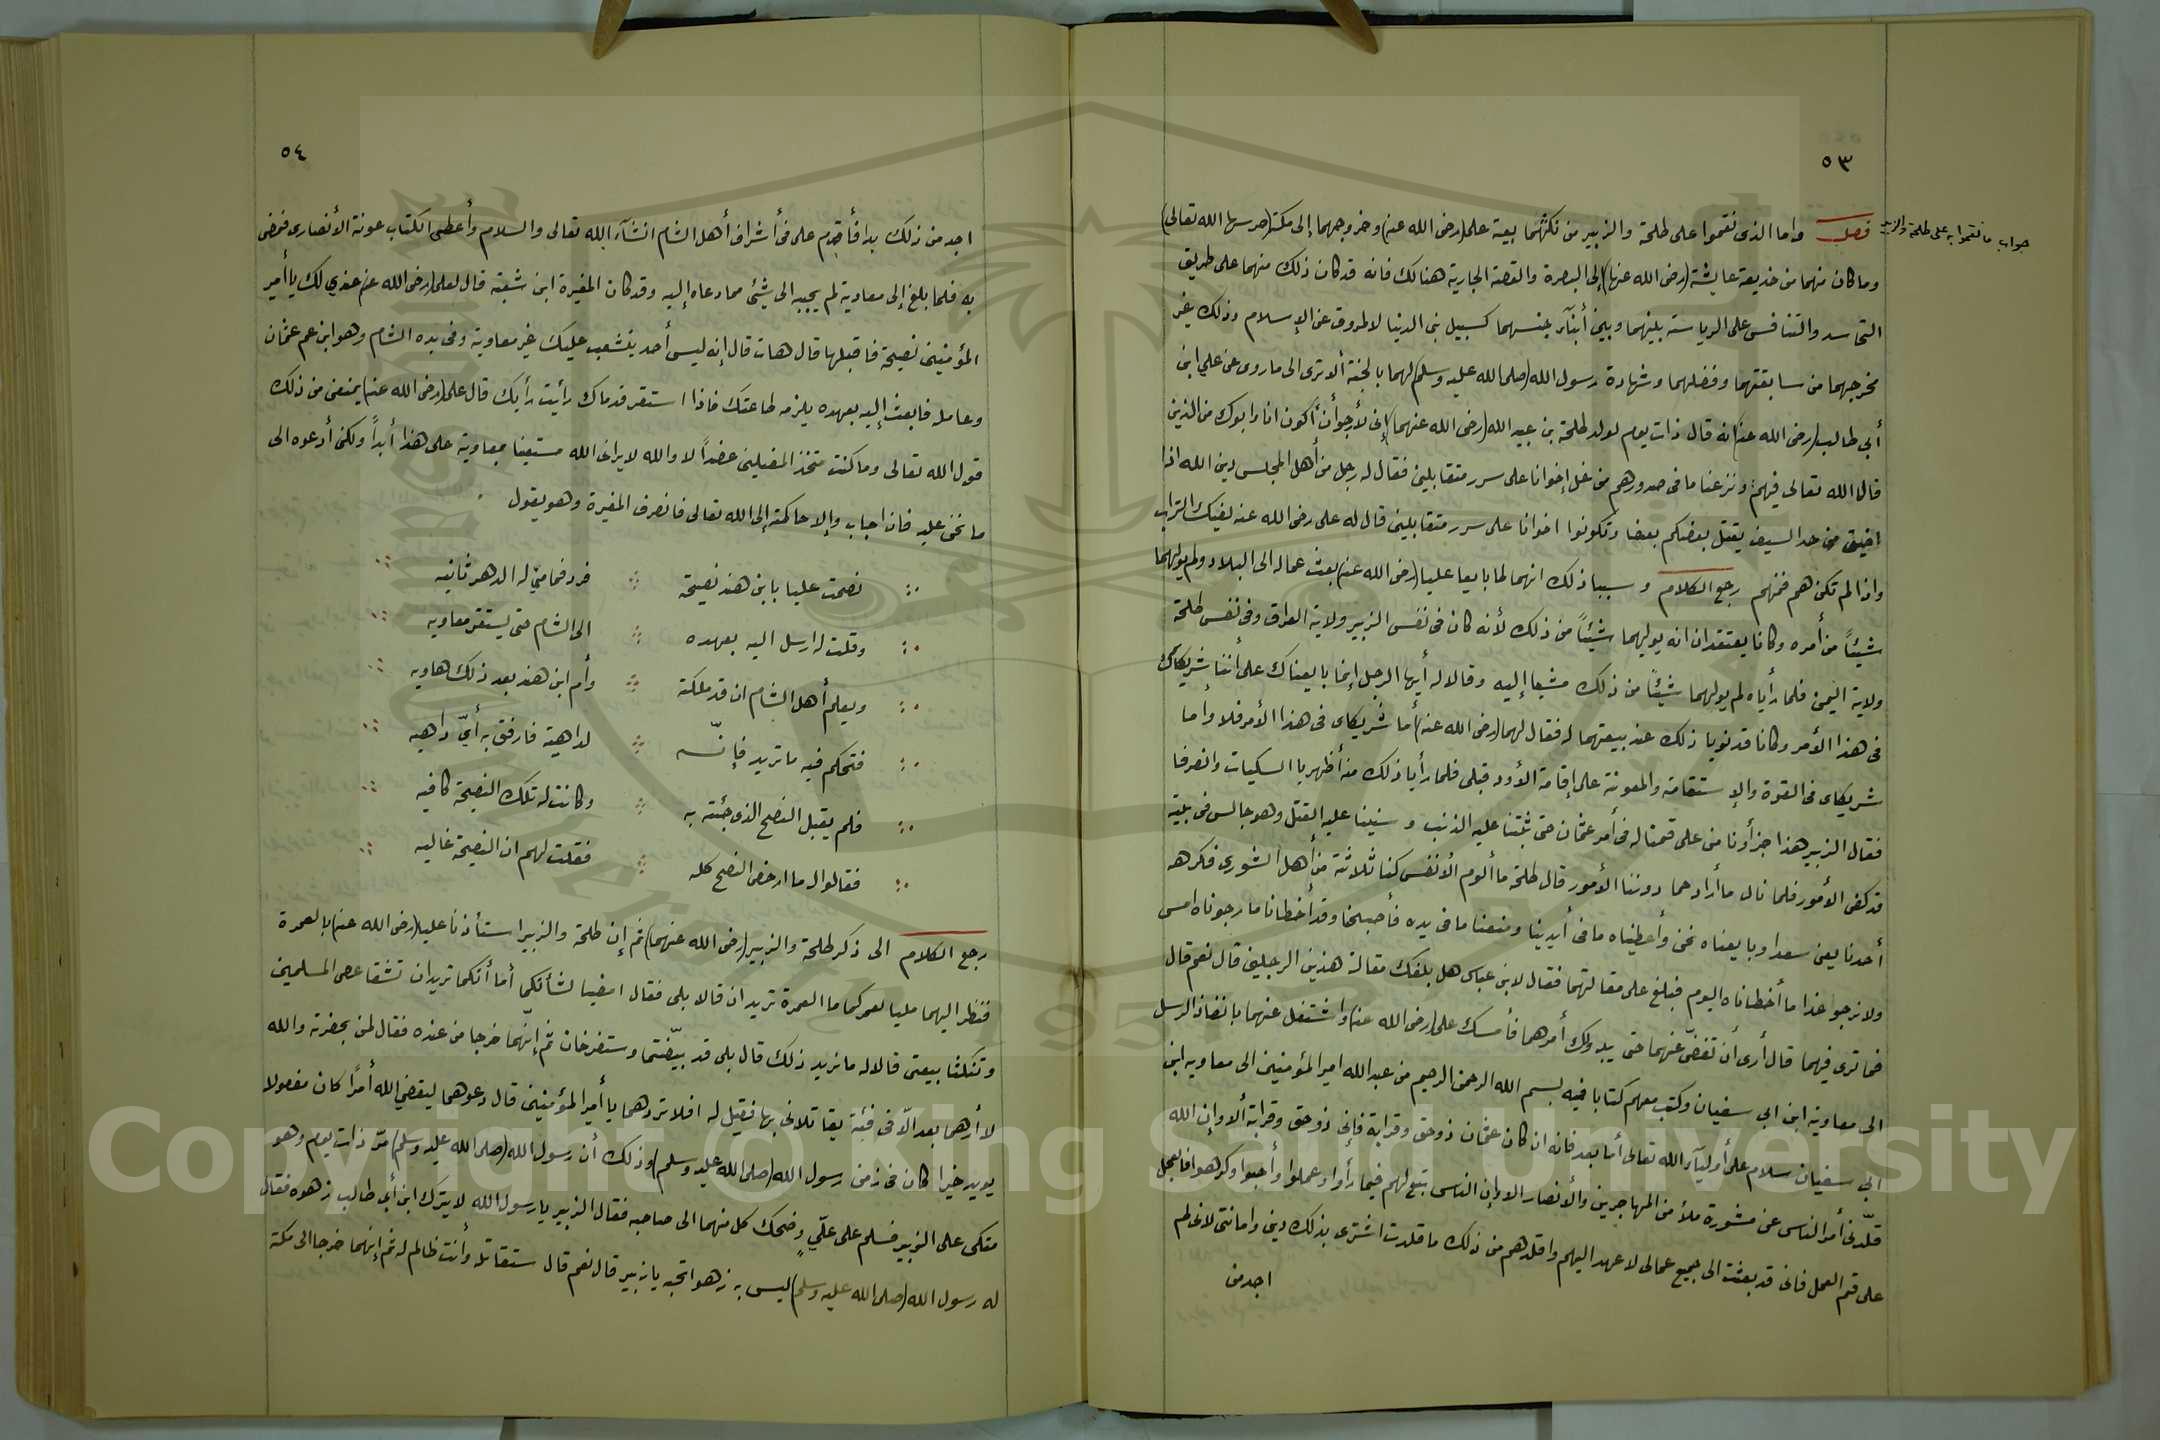 ٥٣
جواب ما نقموا به على طلحة والزبير
فصل واما الذى نقموا على طلحة والزبير من نكثهما بيعة على (رضى الله عنه) وخروجهما إلى مكة (حرسها الله تعالى)
وما كان منهما من خديعة عايشة (رضى الله عنها) إلى البصرة والقصة الجارية هنالك فانه قد كان ذلك منهما على طريق
التحاسد والتنافس على الرياسة بينهما وبين أبنآء جنسهما كسبيل بنى الدنيا لا طروق عن الإسلام وذلك غير
مخرجهما من سابقتهما وفضلهما وشهادة رسول الله (صلى الله عليه وسلم) لهما بالجنة ألا ترى الى ما روى عن علي ابن
أبي طالب (رضى الله عنه) انه قال ذات يوم لولد طلحة بن عبيد الله (رضى الله عنهما) إنى لأرجو أن أكون انا وابوك من الذين
قال الله تعالى فيهم ونزعنا ما فى صدورهم من غل إخوانا على سرر متقابلين فقال له رجل من أهل المجلس دين الله اذا
اضيق من حد السيف يقتل بعضكم بعضا وتكونوا اخوانا على سرر متقابلين قال له على رضى الله عنه بفيك التراب
واذا لم تكن هم فمنهم رجع الكلام وسبب ذلك انهما لما بايعا عليا (رضى الله عنه) بعث عماله الى البلاد ولم يولهما
شيئاً من أمره وكانا يعتقدان انه يوليهما شيئاً من ذلك لأنه كان فى نفس الزبير ولاية العراق وفى نفس طلحة
ولاية اليمن فلما رأياه لم يولهما شيئاً من ذلك مشيا إليه وقالا له أيها الرجل إنما بايعناك على أننا شريكاك
فى هذا الأمر وكانا قد نويا ذلك عند بيعتهما له فقال لهما (رضى الله عنه) أما شريكاى فى هذا الأمر فلا واما
شريكاى فى القوة والإستقامة والمعونة على إقامة الأود قبلى فلما رأيا ذلك منه أظهريا السكيات وانصرفا
فقال الزبير هذا جزأونا من على قمنا له فى أمر عثمان حتى ثبتنا عليه الذنب وسنينا عليه القتل وهو جالس فى بيته
قد كفى الأمور فلما نال ما أراد حما دوننا الأمور قال طلحة ما ألوم الأنفس كنا ثلاثة من أهل الشورى فكرهه
أحدنا يعنى سعدا وبايعناه نحن وأعطيناه ما فى أيدينا ومنعنا ما فى يده فأصبحنا وقد أخطانا ما رجوناه امس
ولا نرجو غدا ما أخطاناه اليوم فبلغ على مقالتهما فقال لابن عباس هل بلغك مقالة هذين الرجلين قال نعم قال
فما ترى فيهما قال أرى أن تغضّ عنهما حتى يبدو لك أمرهما فأمسك على (رضى الله عنه) واشتغل عنهما بانفاذ الرسل
الى معاوية ابن ابى سفيان وكتب معهم كتابا فيه بسم الله الرحمن الرحيم من عبد الله امير المؤمنين الى معاويه ابن
ابي سفيان سلام على أوليآء الله تعالى أما بعد فانه ان كان عثمان ذو حق وقرابة فإنى ذو حق وقرابة ألا وإن الله
قلّدنى أمر الناس عن مشورة ملأ من المهاجرين والأنصار الا وإن الناس تبع لهم فيما رأوا وعملوا وأحبوا وكرهوا فالعجل
على قم العمل فانى قد بعثت الى جميع عمالى لا عهد اليهم واقلدهم من ذلك ما قلدت اشترى بذلك دينى وامانتى لانى لم
اجد من
٥٤
اجد من ذلك بدا فأقدم على فى أشراف أهل الشام انشآء الله تعالى والسلام وأعطى الكتاب عونة الأنصارى فمضى
به فلما بلغ إلى معاوية لم يجبه الى شيئ مما دعاه إليه وقد كان المغيرة ابن شعبة قال لعلى (رضى الله عنه) عندي لك يا أمير
المؤمنين نصيحة فاقبلها قال هات قال إنه ليس أحد يتشعب عليك غير معاوية وفى يده الشام وهو ابن عم عثمان
وعامله فابعث إليه بعهده يلزمه طاعتك فاذا استقر قدماك رأيت رأيك قال على (رضى الله عنه) يمنعنى من ذلك
قول الله تعالى وما كنت متخذ المضلين عضداً لا والله لا يرانى الله مستعينا بمعاوية على هذا أبداً ولكن أدعوه الى
ما نحن عليه فان اجاب وإلا حاكمته إلى الله تعالى فانصرف المغيرة وهو يقول
نصحت عليا بابن هند نصيحة فرد فما منى له الدهر ثانيه
وقلت له ارسل اليه بعهده الى الشام حتى يستقر معاويه
ويعلم أهل الشام ان قد ملكته وأم ابن هند بعد ذلك هاويه
فتحكم فيه ما تريد فإنّه لداهية فارفق به أيّ داهيه
فلم يقبل النصح الذى جئته به وكانت له تلك النصيحة كافيه
فقالوا له ما ارخص النصح كله فقلت لهم ان النصيحة غاليه
رجع الكلام الى ذكر طلحة والزبير (رضى الله عنهما) ثم إن طلحة والزبير استأذنا عليا (رضى الله عنه) بالعمرة
فنظر اليهما مليا لعمركما ما العمرة تريدان قالا بلى فقال امضيا لشأنكما أما أنكما تريدان تشقا عصى المسلمين
وتنكثا بيعتى قالا له ما نريد ذلك قال بلى قد بيّضتما وستفرخان ثم إنّهما خرجا من عنده فقال لمن بحضرته والله
لا أرهما بعد الّا فى فئة يقاتلانى بها فقيل له افلا تردهما يا أمير المؤمنين قال دعوهما ليقضي الله أمرًا كان مفعولا
يويد خبرا كان فى زمن رسول الله (صلى الله عليه وسلم) وذلك أن رسول الله (صلى الله عليه وسلم) مرّ ذات يوم وهو
متكى على الزبير فسلم على علّي وضحك كل منهما الى صاحبه فقال الزبير يا رسول الله لا يترك ابن أبي طالب زهوه فقال
له رسول الله (صلى الله عليه وسلم) ليس به زهو اتحبه يا زبير قال نعم قال ستقاتله وأنت ظالم له ثم إنهما خرجا الى مكة
Copyright © King Saud University